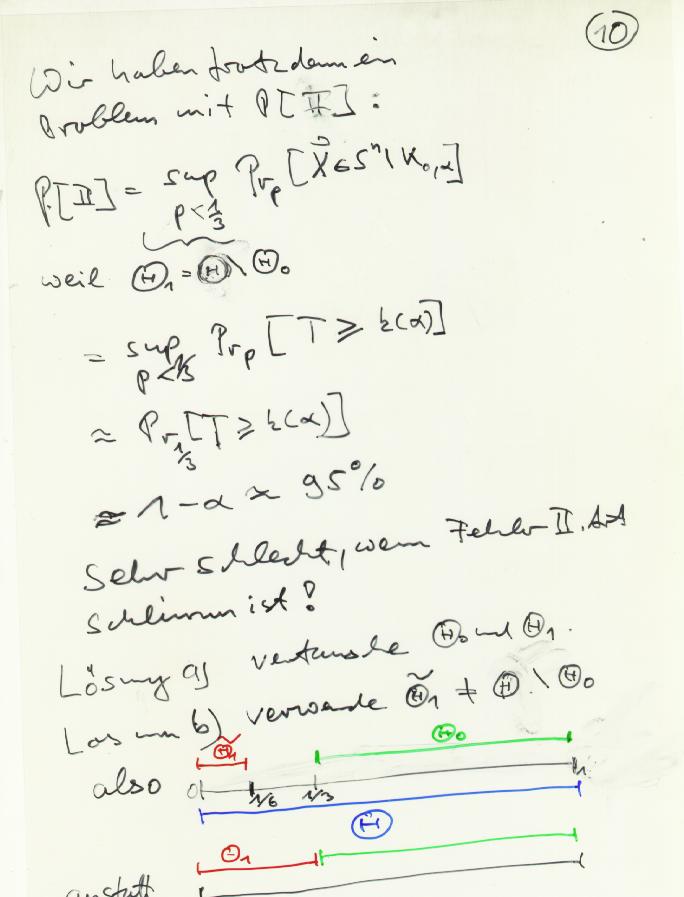 10
Wir haben trotzdem ein
Problem mit P[II]:
P[II] = sup Pr_p [X⃗ ∈ S^n \ K_{0,α}]
p < 1/3
weil Θ₁ = Θ \ Θ₀
= sup Pr_p [T ≥ k(α)]
p < 1/3
≈ Pr_{1/3} [T ≥ k(α)]
≈ 1 - α ≈ 95%
Sehr schlecht, wenn Fehler II. Art
schlimm ist!
Lösung a) vertausche Θ₀ und Θ₁.
Lösung b) verwende Θ̃₁ ≠ Θ \ Θ₀
Θ̃₁ Θ₀
also 0 1/6 1/3 1
Θ
Θ₁
anstatt